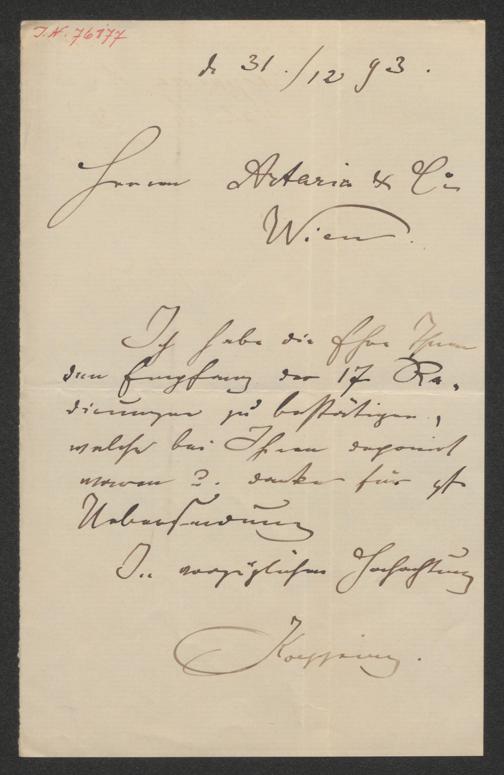 J.N. 76177
d. 31./12 93.
Herren Artaria & Co
Wien.
Ich habe die Ehre Ihnen
den Empfang der 17 Ra-
dierungen zu bestätigen,
welche bei Ihnen deponirt
waren u. danke für gft
Uebersendung
In vorzüglicher Hochachtung
Koepping.